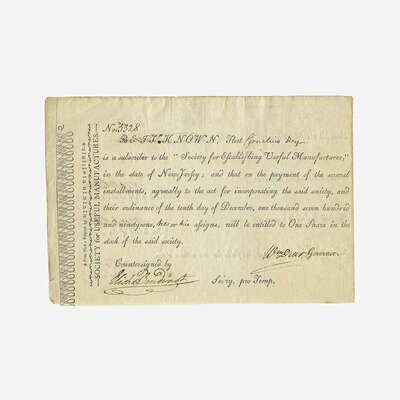 No. 1328
BE IT KNOWN, That Cornelius Ray
is a subscriber to the "Society for Establishing Useful Manufactures,"
in the state of New-Jersey; and that on the payment of the several
installments, agreeably to the act for incorporating the said society, and
their ordinance of the tenth day of December, one thousand seven hundred
and ninety-one, he or his assigns, will be entitled to One Share in the
stock of the said society.
Wm Duer, Governor.
Countersigned by
Elisha Boudinot Secry. pro Temp.
SOCIETY for USEFUL MANUFACTURES